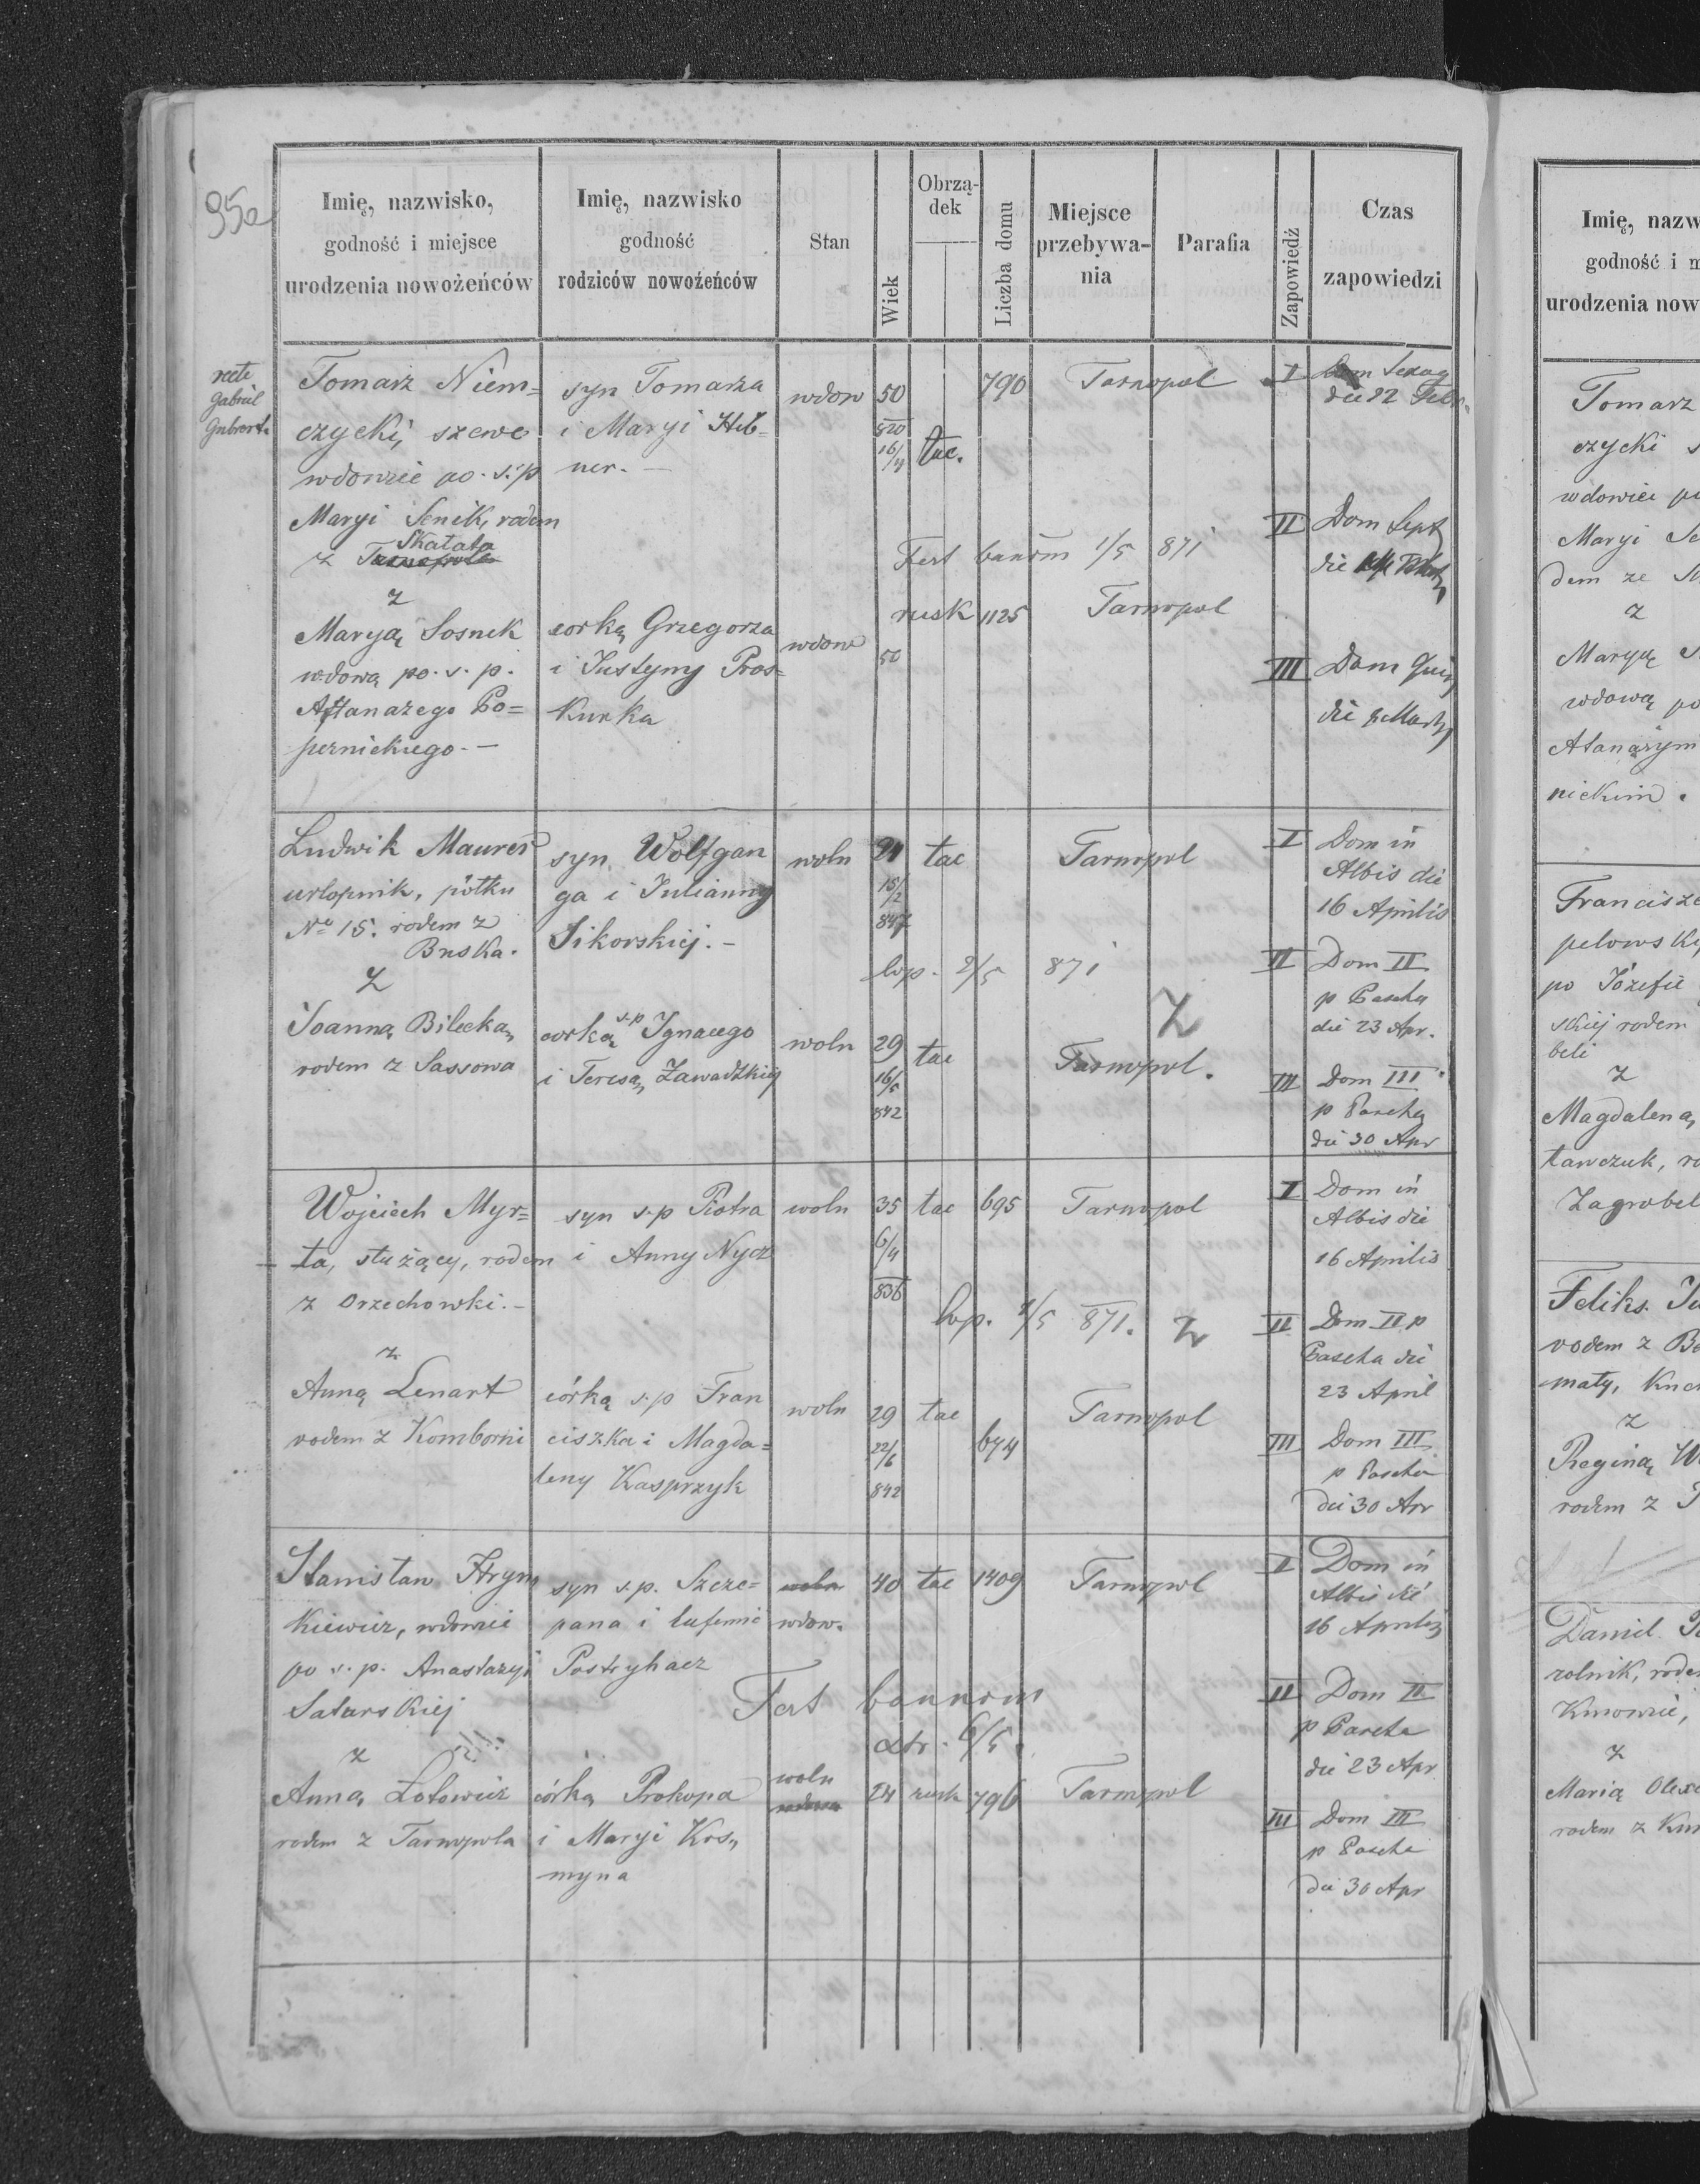 95a
Imię, nazwisko,
godność i miejsce
urodzenia nowożeńców
Imię, nazwisko
godność
rodziców nowożeńców
Stan
Wiek
Obrzą-
dek
Liczba domu
Miejsce
przebywa-
nia
Parafia
Zapowiedź
Czas
zapowiedzi
recte
Gabriel
Tomarz Niem=
czycki, szewc
wdowiec po. s.p
Maryi Senik, rodem
Skałata
z Tarnopola
z
Maryą Sosnek
wdową po. s. p.
Aftanazego Po=
pernickiego. —
syn Tomarza
i Maryi Heb=
ner. —
corką Grzegorza
i Justyny Pros=
kurka
wdow
wdowa
50
820
16/4
tac.
790
Tarnopol
Fert bannom 1/5 871
rusk 1125
Tarnopol
50
I
Dom Sexag
die 12 Feb.
II
Dom Sept
die
III
Dom Quin
die Marty
Ludwik Maurer
urlopnik, półku
No 15. rodem z
Buska.
Z
Joanną Bilecką
rodem z Sassowa
syn Wolfgan
ga i Julianny
Sikorskiej. —
corką s.p Ignacego
i Teresą Zawadzkiej
woln
24
15/2
847
tac
Tarnopol
cop. 2/5 871
Z
woln
29
16/5
842
tac
Tarnopol.
I
Dom in
Albis die
16 Aprilis
II
Dom II
p Pascha
die 23 Apr.
III
Dom III
p Pascha
die 30 Apr
Wojciech Myr=
ta, służący, rodem
z Orzechowki. —
z
Anną Lenart
rodem z Komborni
syn s.p Piotra
i Anny Nycz
córką s.p Fran
ciszka i Magda=
leny Kasprzyk
woln
35
6/4
836
tac
695
Tarnopol
cop. 2/5 871.
z
woln
29
22/6
842
tac
674
Tarnopol
I
Dom in
Albis die
16 Aprilis
II
Dom II p
Pascha die
23 April
III
Dom III
p Pascha
die 30 Apr
Stanisław Hrym
kiewicz, wdowiec
po s. p. Anastazyi
Satarskiej
z
Anną Lotowicz
rodem z Tarnopola
syn s.p. Szcze=
pana i Eufemie
Postryhacz
córką Prokopa
i Maryi Kos„
myna
woln
wdow.
40
tac
1409
Tarnopol
Fert bannom
dtr. 6/5.
woln
wdowa
24
rusk
796
Tarnopol
I
Dom in
Albis die
16 Aprilis
II
Dom II
p Pascha
die 23 Apr
III
Dom III
p Pascha
die 30 Apr
Imię, nazw
godność i m
urodzenia now
Tomarz
czycki s
wdowiec po
Maryi Se
dem ze
z
Maryą S
wdową po
Atanazym
nickim.
Francisze
pelowski,
po Józefie
skiej rodem
beli
z
Magdaleną
tawczuk, ro
Zagrobel
Feliks
rodem z
maty,
z
Reginą
rodem z
Daniel
rolnik, rode
z
Marią Olex
rodem z